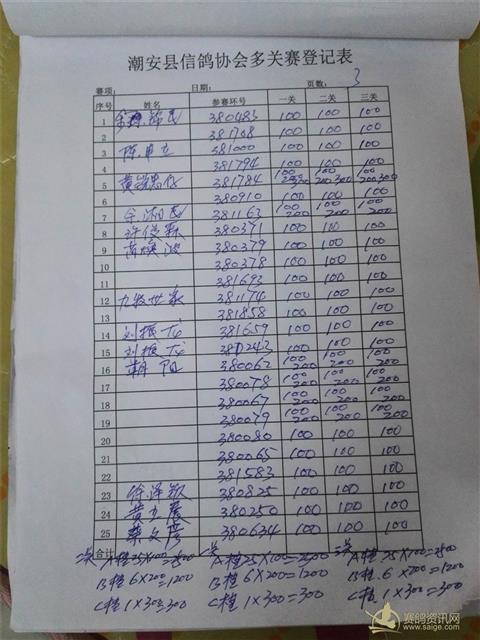 潮安县信鸽协会多关赛登记表
赛项: 日期: 页数: 3
序号 姓名 参赛环号 一关 二关 三关
1 380483 100 100 100
2 381708 100 100 100
3 381000 100 100 100
4 381794 100 100 100
5 381784 100 200 300 100 200 300 100 200 300
6 380910 100 100 100
7 381163 100 200 100 200 100 200
8 380371 100 100 100
9 黄焕波 380379 100 100 100
10 380378 100 100 100
11 381693 100 100 100
12 381174 100 100 100
13 381858 100 100 100
14 刘振龙 381659 100 100 100
15 刘振龙 100 100 100
16 朝阳 380062 100 200 100 200 100 200
17 380078 100 200 100 200 100 200
18 380067 100 200 100 200 100 200
19 380079 100 200 100 200 100 200
20 380080 100 100 100
21 380065 100 100 100
22 381583 100 100 100
23 380825 100 100 100
24 380250 100 100 100
25 蔡文彦 380634 100 100 100
合计:
A植25×100=2500 A植25×100=2500 A植25×100=2500
B植6×200=1200 B植6×200=1200 B植6×200=1200
C植1×300=300 C植1×300=300 C植1×300=300
赛鸽资讯网
www.saige.com